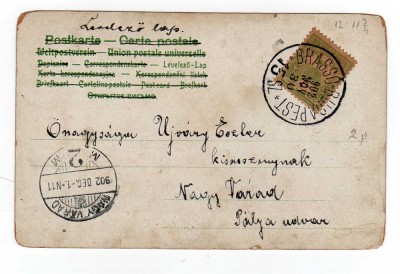 12:11
Levelező lap.
Postkarte — Carte postale
Weltpostverein — Union postale universelle
Dopisnice — Correspondenzkarte — Levelező-Lap
Karta korespondencyjna — Korespondenční lístek
Briefkart — Cartolina postale — Postcard — Brefkort
Открытое письмо
BRASSÓ-BUDAPEST
Önagysága Ujváry Eszter
kisasszonynak
Nagy Várad
Pálya udvar
NAGYVÁRAD
902 DEC -1 N11